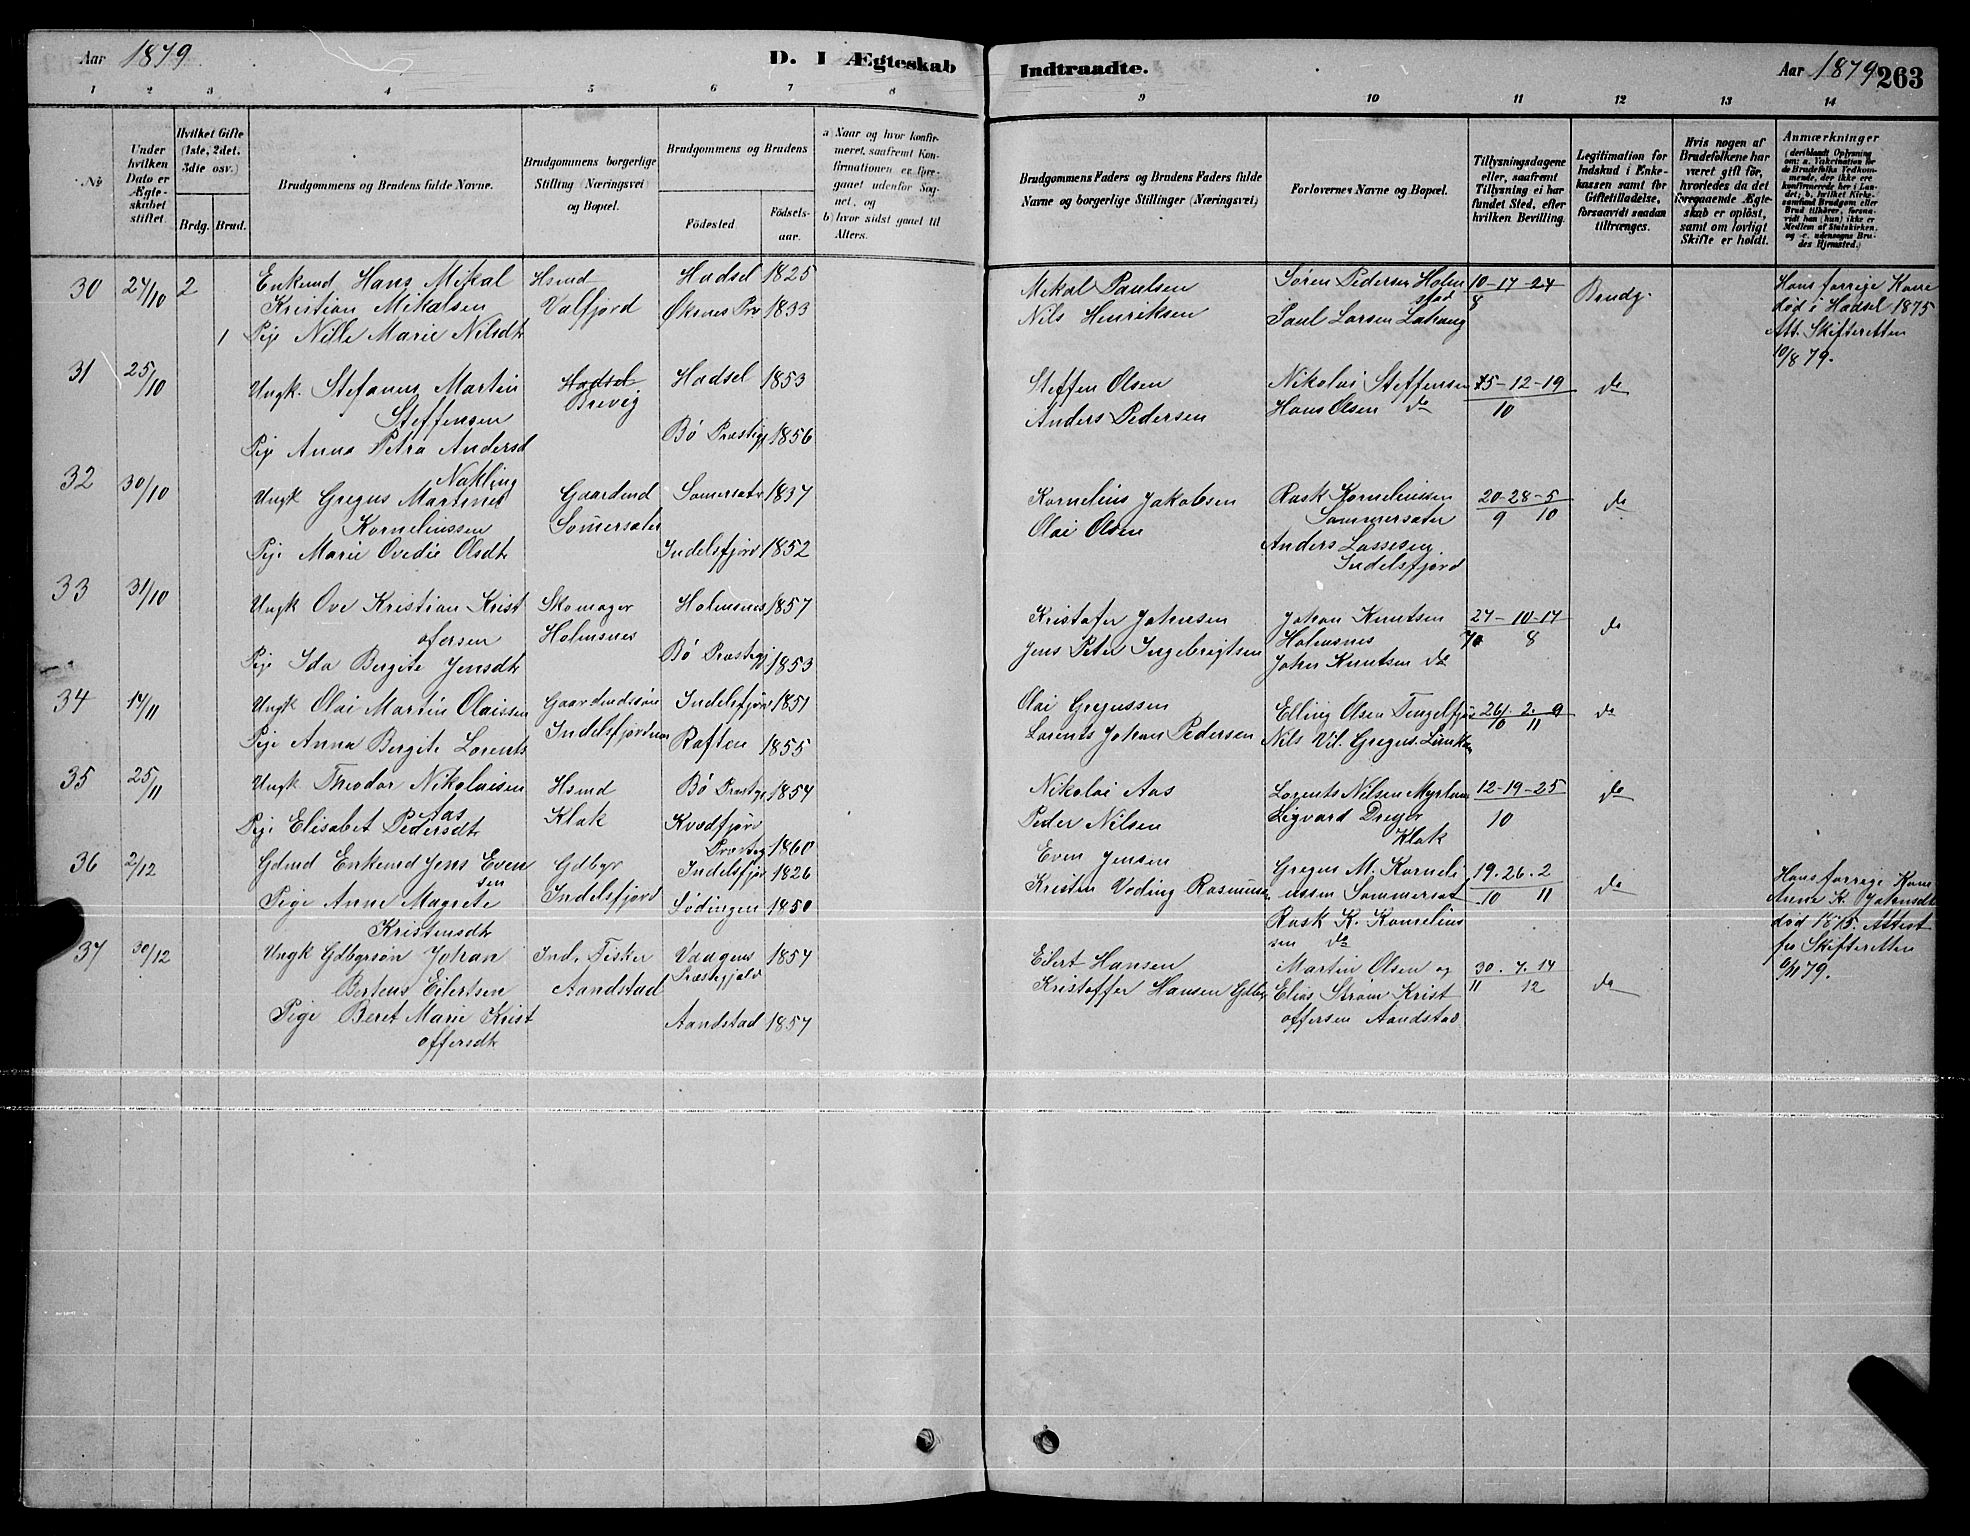 Aar 1879
D. I Ægteskab Indtraadte.
Aar 1879 263
1 2 3 4 5 6 7 8 9 10 11 12 13 14
No
Under hvilken Dato er Ægteskabet stiftet.
Hvilket Gifte (1ste, 2det, 3die osv.)
Brdg. Brud.
Brudgommens og Brudens fulde Navne.
Brudgommens borgerlige Stilling (Næringsvei) og Bopæl.
Brudgommens og Brudens
Födested. Födselsaar.
a) Naar og hvor konfirmeret, saafremt Konfirmationen er foregaaet udenfor Sognet, og
b) hvor sidst gaaet til Alters.
Brudgommens Faders og Brudens Faders fulde Navne og borgerlige Stillinger (Næringsvei)
Forlovernes Navne og Bopæl.
Tillysningsdagene eller, saafremt Tillysning ei har fundet Sted, efter hvilken Bevilling.
Legitimation for Indskud i Enkekassen samt for Giftetilladelse, forsaavidt saadan tiltrænges.
Hvis nogen af Brudefolkene har været gift før, hvorledes da det foregaaende Ægteskab er opløst, samt om lovligt Skifte er holdt.
Anmærkninger
30 27/10 2 Enkemd Hans Mikal Hsmd Hadsel 1825 Mikal Paulsen Sören Pedersen Holmstad 10-17-24 Brudg. Hans forrige Kone
Kristian Mikalsen Valfjord Öksnes Pr 1833 Nils Henriksen Paul Larsen Lahaug 8 död i Hadsel 1875
1 Pige Nille Marie Nilsdt Att. Skifteretten
10/8 79.
31 25/10 Ungk. Stefanus Martin Hadsel Hadsel 1853 Steffen Olsen Nikolai Steffensen 5-12-19 do
Steffensen Brevig Anders Pedersen Hans Olsen do 10
Pige Anna Petra Andersd Bö Præstegj 1856
Nakling
32 30/10 Ungk Gregus Martinus Gaardmd Somersæter 1837 Kornelius Jakobsen Rask Korneliussen 20-28-5 do
Korneliussen Somersæter Olai Olsen Sommersæter 9 10
Pige Marie Ovedie Olsdt Indelsfjord 1852 Anders Lassesen
Indelsfjord
33 31/10 Ungk Ove Kristian Krist Skomager Holmsnes 1857 Kristofer Johnsen Johan Knutsen 27-10-17 do
ofersen Holmsnes Jens Peter Ingebrigtsen Holmsnes 8
Pige Ida Bergite Jensdt Bö Præstegj 1853 Johan Knutsen do
34 14/11 Ungk Olai Martin Olaissen Gaardmdssön Indelsfjor 1851 Olai Gregussen Elling Olsen Tengelfjor 26. 2. 9 do
Pige Anna Bergite Lorents Indelsfjorden Raften 1855 Lorents Johan Pedersen Nils Vil. Gregus. 10 11
35 25/11 Ungk Theodor Nikolaisen Hsmd Bö Præstgj 1854 Nikolai Aas Lorents Nilsen Myrland 12-19-25 do
Aas
Pige Elisabet Pedersdt Klak Kvædfjor Peder Nilsen Sigvard Dreyer 10
Præsteg 1860 Klak
36 2/12 Gdmd Enkemd Jens Even Gdbgr Indelsfjor 1826 Even Jensen Gregus M. Korneli 19. 26. 2 do Hans forrige Kone
sen Indelsfjord Kristen Voding Rasmus ussen Sommersæt 10 11 Anne K. Johansdt
Pige Anne Magrete Lödingen 1850 Rask K. Kornelius död 1875. Attest
Kristensdt sen do fra Skifteretten
6/11 79.
37 30/12 Ungk Gdbgrsön Johan Ind. Fisker Vaagens 1857 Eilert Hansen Martin Olsen og 30. 7. 14 do
Berteus Eilertsen Aandstad Præstegjæld Kristoffer Hansen Gdbgr Elias Ström Krist 11 12
Pige Beret Marie Krist Aandstad 1857 offersen Aandstad
offersdt